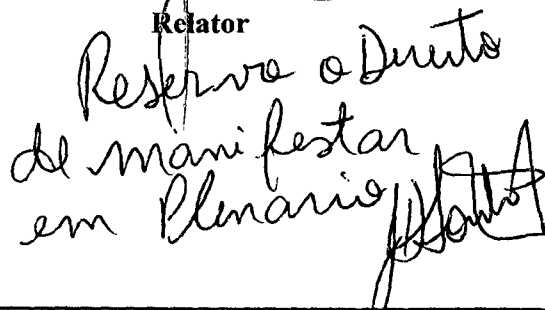 Relator
Reservo o Direito
de manifestar
em Plenario